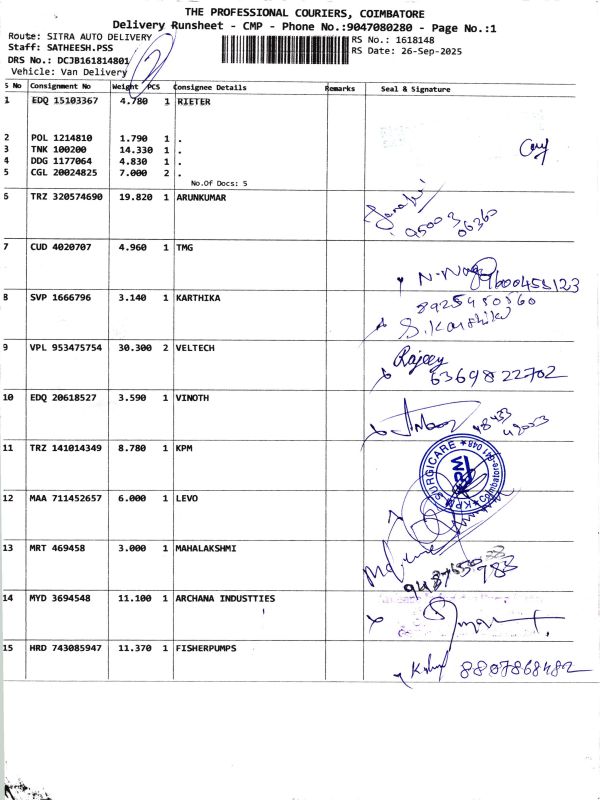 THE PROFESSIONAL COURIERS, COIMBATORE
Delivery Runsheet - CMP - Phone No.:9047080280 - Page No.:1
Route: SITRA AUTO DELIVERY
Staff: SATHEESH.PSS
DRS No.: DCJB161814801
Vehicle: Van Delivery
RS No.: 1618148
RS Date: 26-Sep-2025
S No Consignment No Weight PCS Consignee Details Remarks Seal & Signature
1 EDQ 15103367 4.780 1 RIETER
2 POL 1214810 1.790 1 .
3 TNK 100200 14.330 1 .
4 DDG 1177064 4.830 1 .
5 CGL 20024825 7.000 2 .
No.Of Docs: 5
6 TRZ 320574690 19.820 1 ARUNKUMAR
95003 06360
7 CUD 4020707 4.960 1 TMG
9600455123
8 SVP 1666796 3.140 1 KARTHIKA
8925450560
S.Karthika
9 VPL 953475754 30.300 2 VELTECH
Rajeev
6369822702
10 EDQ 20618527 3.590 1 VINOTH
11 TRZ 141014349 8.780 1 KPM
KPM SURGICARE ★ Coimbatore-641 048 ★
KPM
12 MAA 711452657 6.000 1 LEVO
13 MRT 469458 3.000 1 MAHALAKSHMI
14 MYD 3694548 11.100 1 ARCHANA INDUSTTIES
15 HRD 743085947 11.370 1 FISHERPUMPS
8807868482